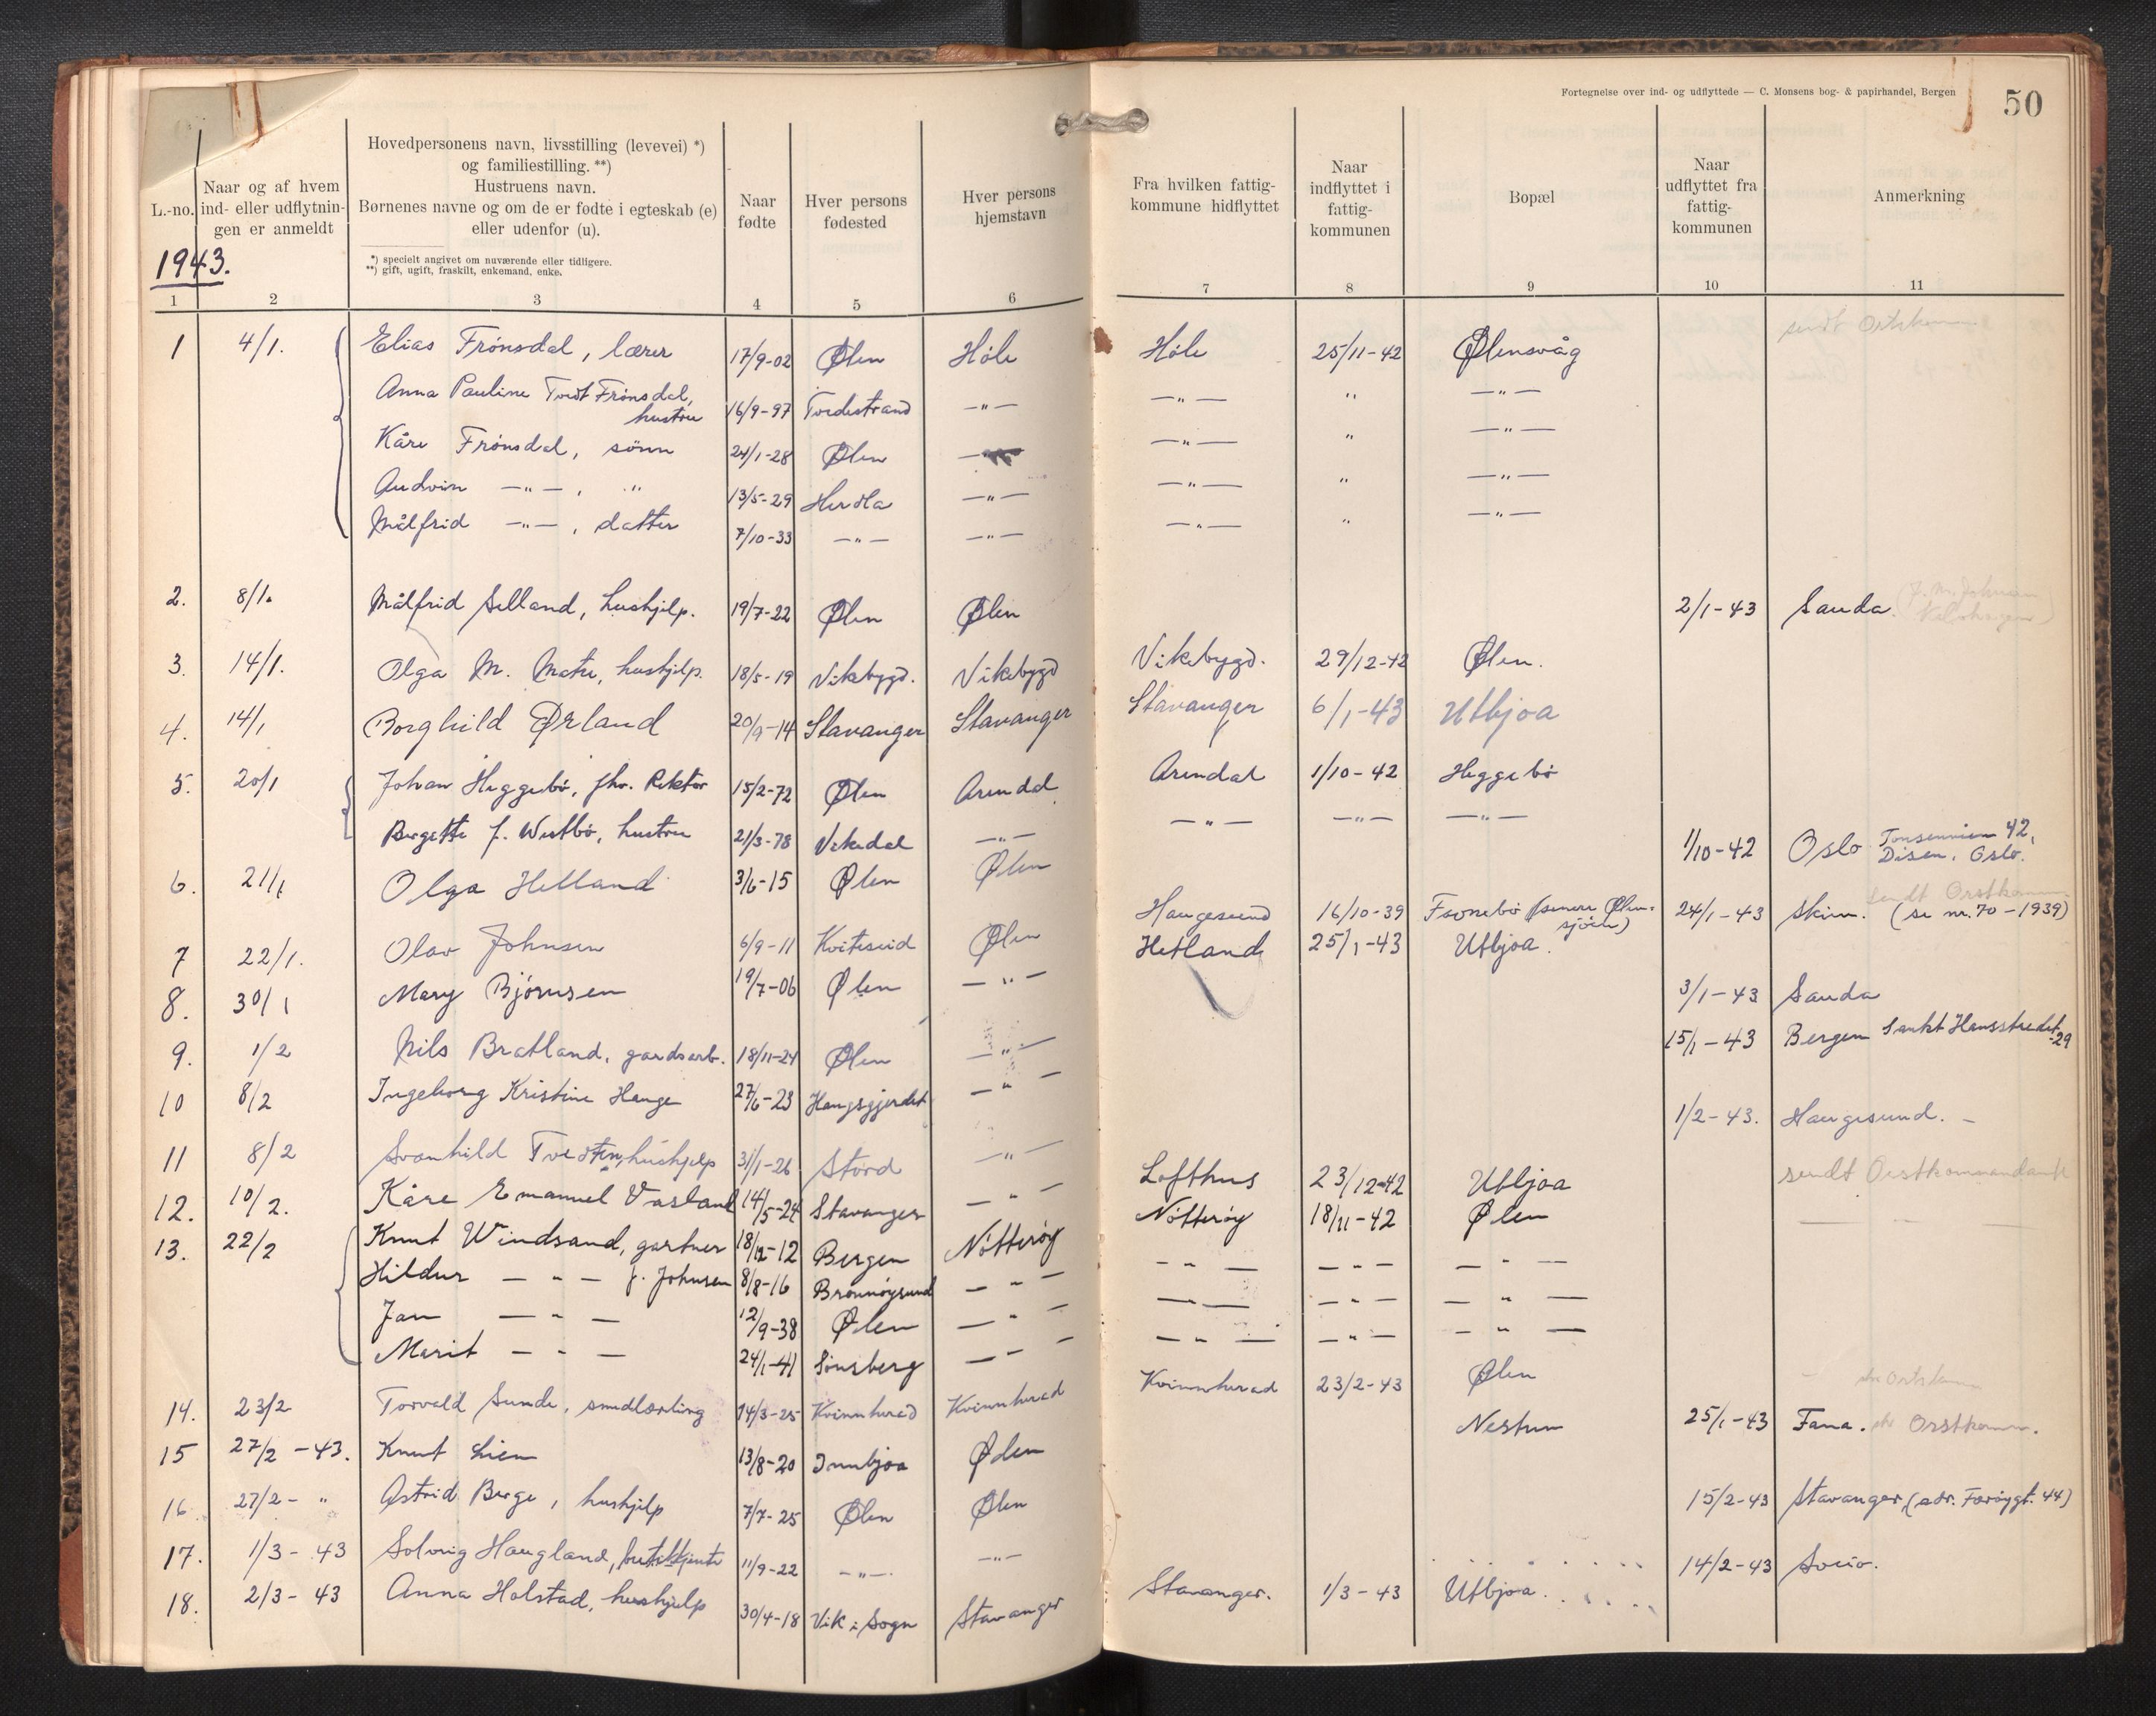 Fortegnelse over ind- og udflyttede — C. Monsens bog- & papirhandel, Bergen
50
L.-no.
Naar og af hvem ind- eller udflytningen er anmeldt
Hovedpersonens navn, livsstilling (levevei) *) og familiestilling. **)
Hustruens navn.
Børnenes navne og om de er fødte i egteskab (e) eller udenfor (u).
*) specielt angivet om nuværende eller tidligere.
**) gift, ugift, fraskilt, enkemand, enke.
Naar fødte
Hver persons fødested
Hver persons hjemstavn
Fra hvilken fattigkommune hidflyttet
Naar indflyttet i fattigkommunen
Bopæl
Naar udflyttet fra fattigkommunen
Anmerkning
1943.
1 2 3 4 5 6 7 8 9 10 11
1 4/1. Elias Frønsdal, lærer 17/9-02 Ølen Høle Høle 25/11-42 Ølensvåg
Anna Pauline Tvedt Frønsdal, hustru 16/9-97 Tvedestrand —"— —"— " —"—
Kåre Frønsdal, sønn 24/1-28 Ølen —"— " —"—
Audvin —"—, " 13/5-29 Herdla —"— —"— " —"—
Målfrid —"—, datter 7/10-33 —"— —"— —"— " —"—
2. 8/1. Målfrid Selland, hushjelp. 19/7-22 Ølen Ølen 2/1-43 Sauda.
3. 14/1. Olga M. Matre, hushjelp. 18/5-19 Vikebygd. Vikebygd Vikebygd. 29/12-42 Ølen.
4. 14/1 Borghild Ørland 20/9-14 Stavanger Stavanger Stavanger 6/1-43 Utbjoa
5. 20/1 Johan Heggebø, fhv. Rektor 15/2-72 Ølen Arendal Arendal 1/10-42 Heggebø
Bergette f. Westbø, hustru 21/3-78 Vikedal —"— —"— —"— —"—
6. 21/1 Olga Helland 3/6-15 Ølen Ølen 1/10-42 Oslo Tonsenveien 42, Disen, Oslo.
7 22/1. Olav Johnsen 6/9-11 Kviteseid Ølen Haugesund 16/10-39 (senere Ølensjøen) 24/1-43 Skien. (se nr. 70-1939)
8. 30/1 Mary Bjørnsen 19/7-06 Ølen —"— Hetland 25/1-43 Utbjoa.
3/1-43 Sauda
9. 1/2 Nils Bratland, gardsarb. 18/11-24 Ølen —"— 15/1-43 Bergen Sankt Hansstredet 29
10 8/2 Ingeborg Kristine Hauge 27/6-23 Haugsgjerdet —"— 1/2-43. Haugesund. —
11 8/2 Svanhild Tvedten, hushjelp 31/1-26 Stord —"—
12. 10/2. Kåre Emanuel 14/5-24 Stavanger —"— Lofthus 23/12-42 Utbjoa sendt Orstkommandant
13. 22/2 Knut Windsand, gartner 18/12-12 Bergen Nøtterøy Nøtterøy 18/11-42 Ølen
Hildur —"— f. Johnsen 8/8-16 Brønnøysund —"— —"— —"— —"—
Jan —"— 12/9-38 Ølen —"— —"— —"— —"—
Marit —"— 24/1-41 Tønsberg —"— —"— —"— —"—
14. 23/2 Torvald Sunde, smedlærling 14/3-25 Kvinnherad Kvinnherad Kvinnherad 23/2-43 Ølen
15 27/2-43. Knut Lien 13/8-20 Innbjoa Ølen Nestun 25/1-43 Fana. Orstkomm.
16. 27/2-" Astrid Berge, hushjelp 7/7-25 Ølen Ølen 15/2-43 Stavanger, (adr. Færøygt. 44)
17. 1/3-43 Solveig Haugland, butikkjente 11/9-22 —"— —"— 14/2-43 Sveio.
18. 2/3-43 Anna Holstad, hushjelp 30/4-18 Vik i Sogn Stavanger Stavanger. 1/3-43 Utbjoa.